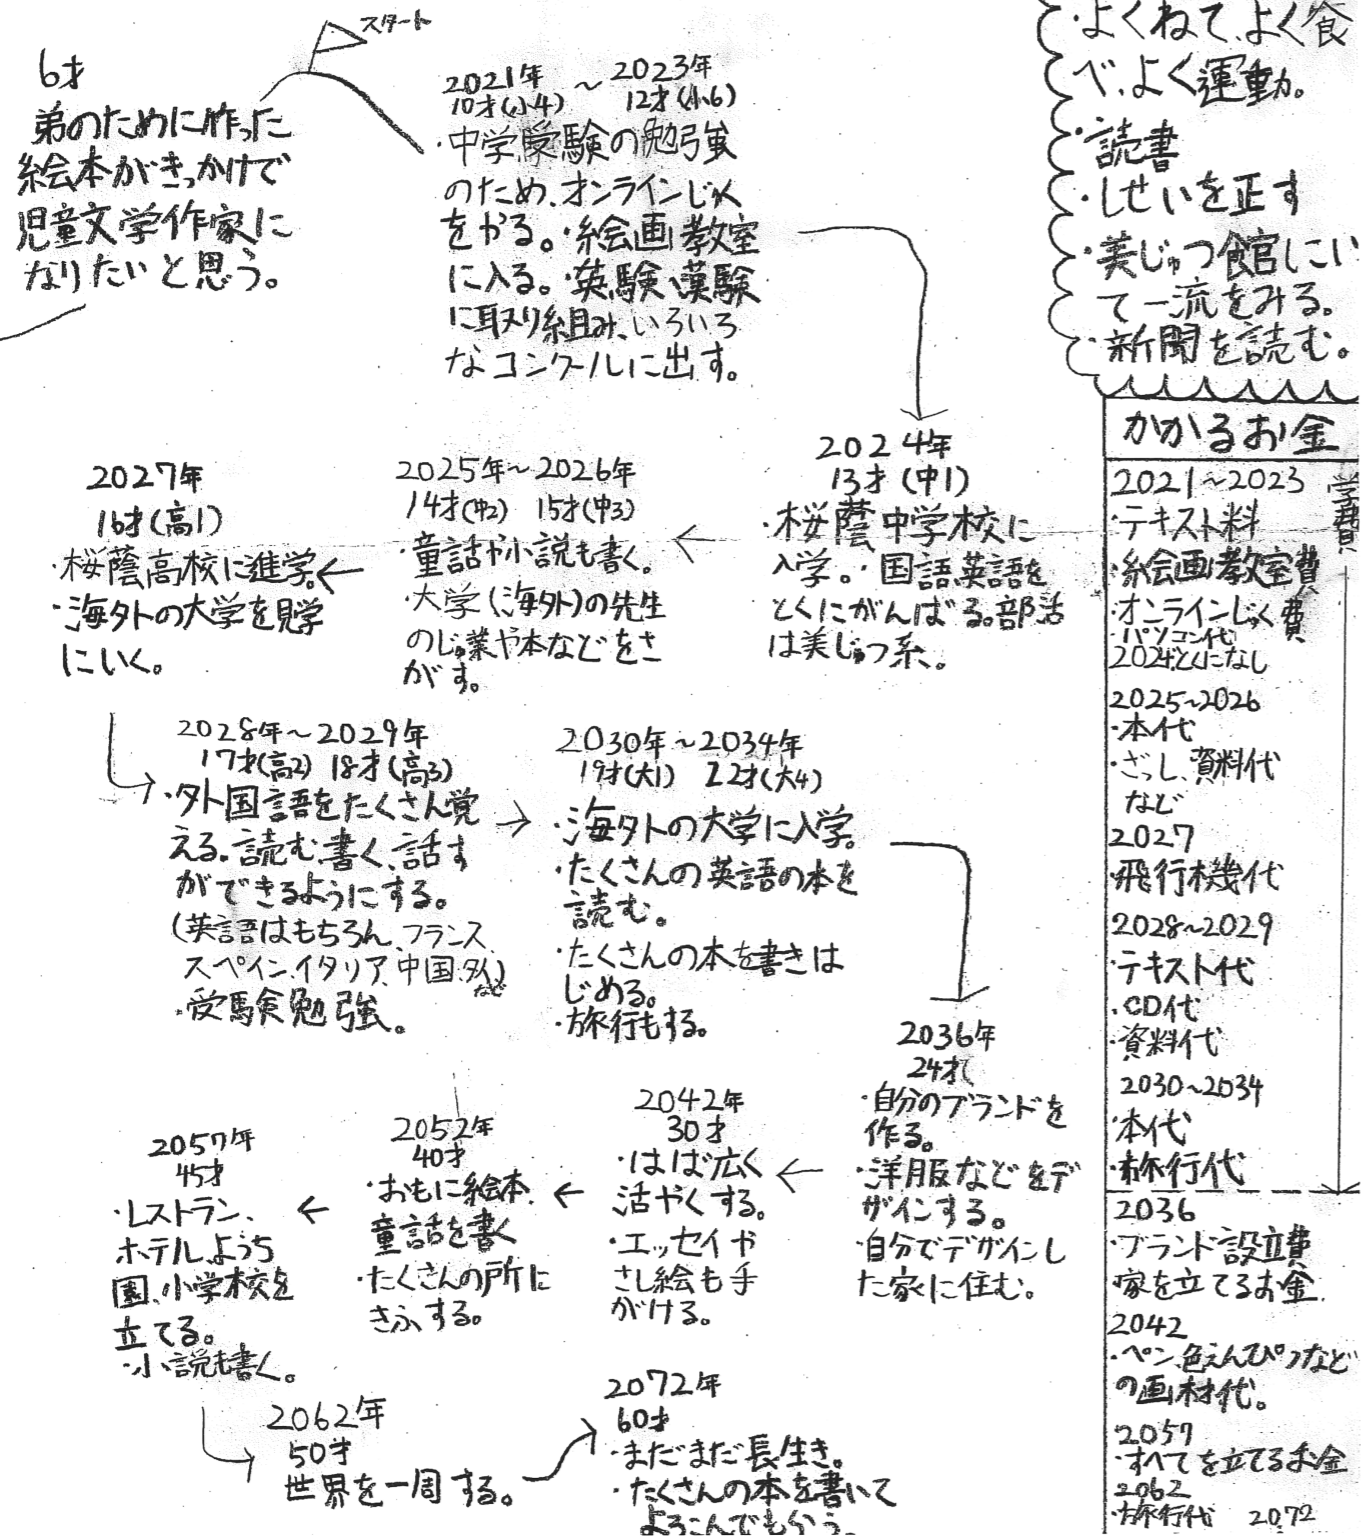 スタート
6才
弟のために作った
絵本がきっかけで
児童文学作家に
なりたいと思う。
2021年 ～ 2023年
10才(小4) 12才(小6)
・中学受験の勉強
のため、オンラインじゅく
をやる。・絵画教室
に入る。・英験、漢験
に取り組み、いろいろ
なコンクールに出す。
2024年
13才(中1)
・桜蔭中学校に
入学。・国語、英語を
とくにがんばる。部活
は美じゅつ系、。
2025年～2026年
14才(中2) 15才(中3)
・童話や小説も書く。
・大学(海外)の先生
のじゅ業や本などをさ
がす。
2027年
16才(高1)
・桜蔭高校に進学。
・海外の大学を見学
にいく。
2028年～2029年
17才(高2) 18才(高3)
・外国語をたくさん覚
える。読む、書く、話す
ができるようにする。
(英語はもちろん、フランス、
スペイン、イタリア、中国、タイ)
など
・受験勉強。
2030年～2034年
19才(大1) 22才(大4)
・海外の大学に入学。
・たくさんの英語の本を
読む。
・たくさんの本を書きは
じめる。
・旅行もする。
2036年
24才
・自分のブランドを
作る。
・洋服などをデ
ザインする。
・自分でデザインし
た家に住む。
2042年
30才
・はば広く
活やくする。
・エッセイや
さし絵も手
がける。
2052年
40才
・おもに絵本、
童話を書く
・たくさんの所に
きふする。
2057年
45才
・レストラン、
ホテル、ようち
園、小学校を
立てる。
・小説も書く。
2062年
50才
世界を一周する。
2072年
60才
・まだまだ長生き。
・たくさんの本を書いて
よろこんでもらう。
・よくねて、よく食
べ、よく運動。
・読書
・しせいを正す
・美じゅつ館にい
て一流をみる。
・新聞を読む。
かかるお金
学費
2021～2023
・テキスト料
・絵画教室費
・オンラインじゅく費
・パソコン代
2024:とくになし
2025~2026
・本代
・ざっし、資料代
など
2027
・飛行機代
2028~2029
・テキスト代
・CD代
・資料代
2030~2034
・本代
・旅行代
2036
・ブランド設立費
家を立てるお金
2042
・ペン、色えんぴつなど
の画材代。
2057
・すべてを立てるお金
2062
・旅行代 2072